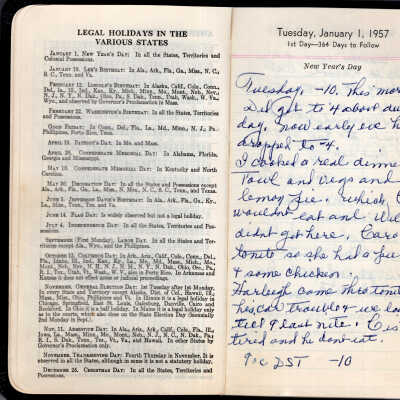 LEGAL HOLIDAYS IN THE
VARIOUS STATES
JANUARY 1, NEW YEAR'S DAY: In all the States, Territories and
Colonial Possessions.
JANUARY 19, LEE'S BIRTHDAY: In Ala., Ark., Fla., Ga., Miss., N. C.,
S. C., Tenn. and Va.
FEBRUARY 12, LINCOLN'S BIRTHDAY: In Alaska, Calif., Colo., Conn.,
Wyo., and observed by Governor's Proclamation in Mass.
FEBRUARY 22, WASHINGTON'S BIRTHDAY: In all the States, Territories
and Possessions.
GOOD FRIDAY: In Conn., Del., Fla., La., Md., Minn., N. J., Pa.
Philippines, Porto Rico, Tenn.
APRIL 19, PATRIOT'S DAY: In Me. and Mass.
APRIL 26, CONFEDERATE MEMORIAL DAY: In Alabama, Florida,
Georgia and Mississippi.
MAY 10, CONFEDERATE MEMORIAL DAY: In Kentucky and North
Carolina.
MAY 30, DECORATION DAY: In all the States and Possessions except
Ala., Ark., Fla., Ga., La., Miss., N. Mex., N. C., S. C., Tenn., and Texas.
JUNE 3, JEFFERSON DAVIS'S BIRTHDAY: In Ala., Ark., Fla., Ga., Ky.,
La., Miss., Tenn., Tex. and Va.
JUNE 14, FLAG DAY: Is widely observed but not a legal holiday.
JULY 4, INDEPENDENCE DAY: In all the States, Territories and Pos-
sessions.
SEPTEMBER (First Monday), LABOR DAY: In all the States and Ter-
ritories except Ala., Wyo., and the Philippines.
OCTOBER 12, COLUMBUS DAY: In Ariz., Ark., Calif., Colo., Conn., Del.,
Kansas it does not affect notes or judicial proceedings.
NOVEMBER, GENERAL ELECTION DAY: In 1st Tuesday after 1st Monday,
in every State and Territory except Alaska, Dist. of Col., Hawaii, Ill.,
Mass., Miss., Ohio, Philippines and Vt. In Illinois it is a legal holiday in
Chicago, Springfield, East St. Louis, Galesburg, Danville, Cairo and
Rockford. In Ohio it is a half holiday. In Maine it is a legal holiday only
as to the courts, which also close on the State Election Day (biennially
2nd Monday in Sept.).
NOV. 11, ARMISTICE DAY: In Ala., Ariz., Ark., Calif., Colo., Fla., Ill.,
Governor's Proclamation only.
NOVEMBER, THANKSGIVING DAY: Fourth Thursday in November. It is
observed in all the States, although in some it is not a statutory holiday.
DECEMBER 25, CHRISTMAS DAY: In all the States, Territories and Pos-
sessions.
Tuesday, January 1, 1957
1st Day—364 Days to Follow
New Year's Day
Tuesday, -10. This mor
Did get to 4 about du
day. now early eve h
dropped to -4.
I cooked a real dinne
Fowl and vegs and
lemon pie. which, C
wouldnt eat and Wil
didnt get here. Caro
tonite so she had a pie
& some chicken.
Harleigh came into tonit
his car trouble, we lo
till 9 last nite. C is
tired and he dont eat.
DST -10